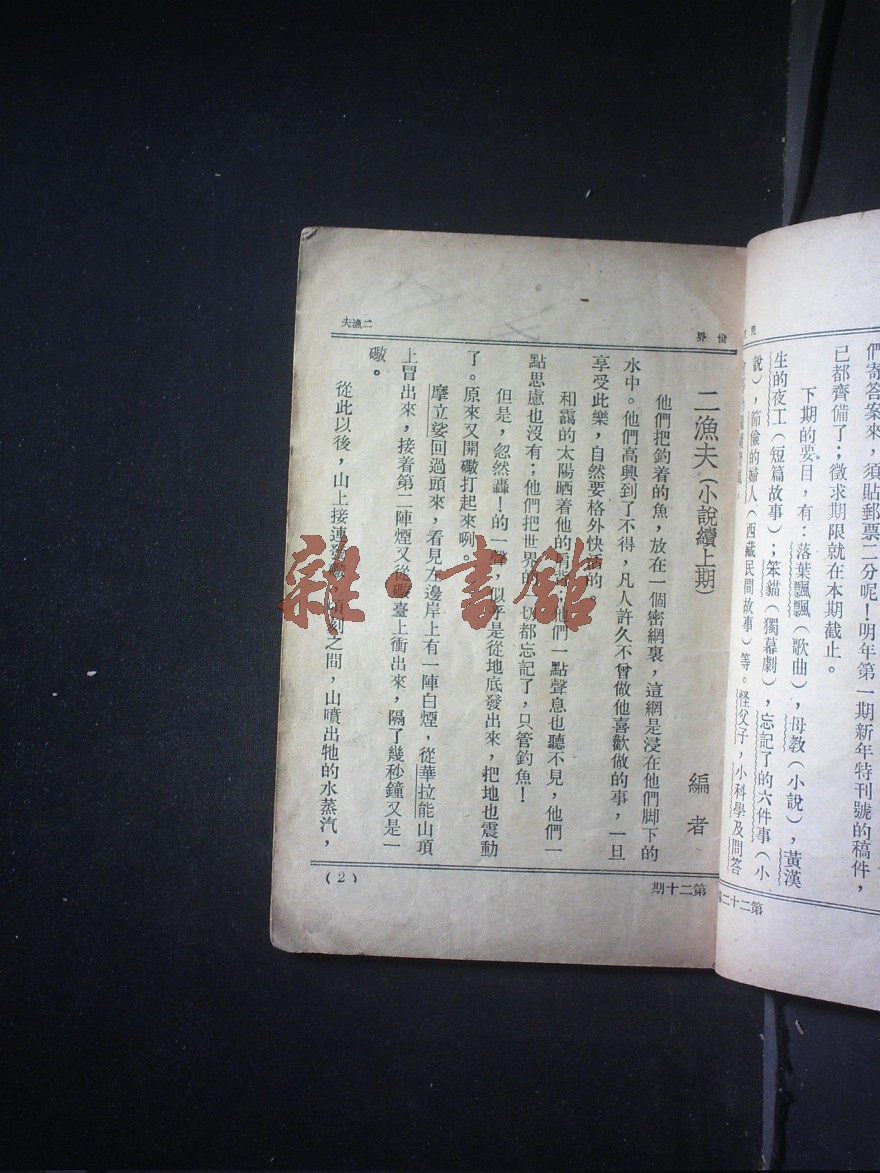 們寄答案來，須貼郵票二分呢！明年第一期新年特刊號的稿件，
已都齊備了；徵求期限就在本期截止。
下期的要目，有：落葉飄飄（歌曲），母教（小說），黃漢
生的夜工（短篇故事）；笨貓（獨幕劇），忘記了的六件事（小
說），節儉的婦人（西藏民間故事）等。怪父子，小科學及問答
第二十二
世界
二漁夫（小說續上期）
編者
他們把釣着的魚，放在一個密網裏，這網是浸在他們脚下的
水中。他們高興到了不得，凡人許久不曾做他喜歡做的事，一旦
享受此樂，自然要格外快活的。
和靄的太陽晒着他的肩背；他們一點聲息也聽不見，他們一
點思慮也沒有；他們把世界的一切都忘記了，只管釣魚！
但是，忽然轟！的一聲，似乎是從地底發出來，把地也震動
了。原來又開礮打起來咧。
摩立娑回過頭來，看見左邊岸上有一陣白煙，從華拉能山項
上冒出來，接着第二陣煙又從礮臺上衝出來，隔了幾秒鐘又是一
礮。
從此以後，山上接連發礮，頃刻之間，山噴出牠的水蒸汽，
二漁夫
第二十期
（2）
雜·書館